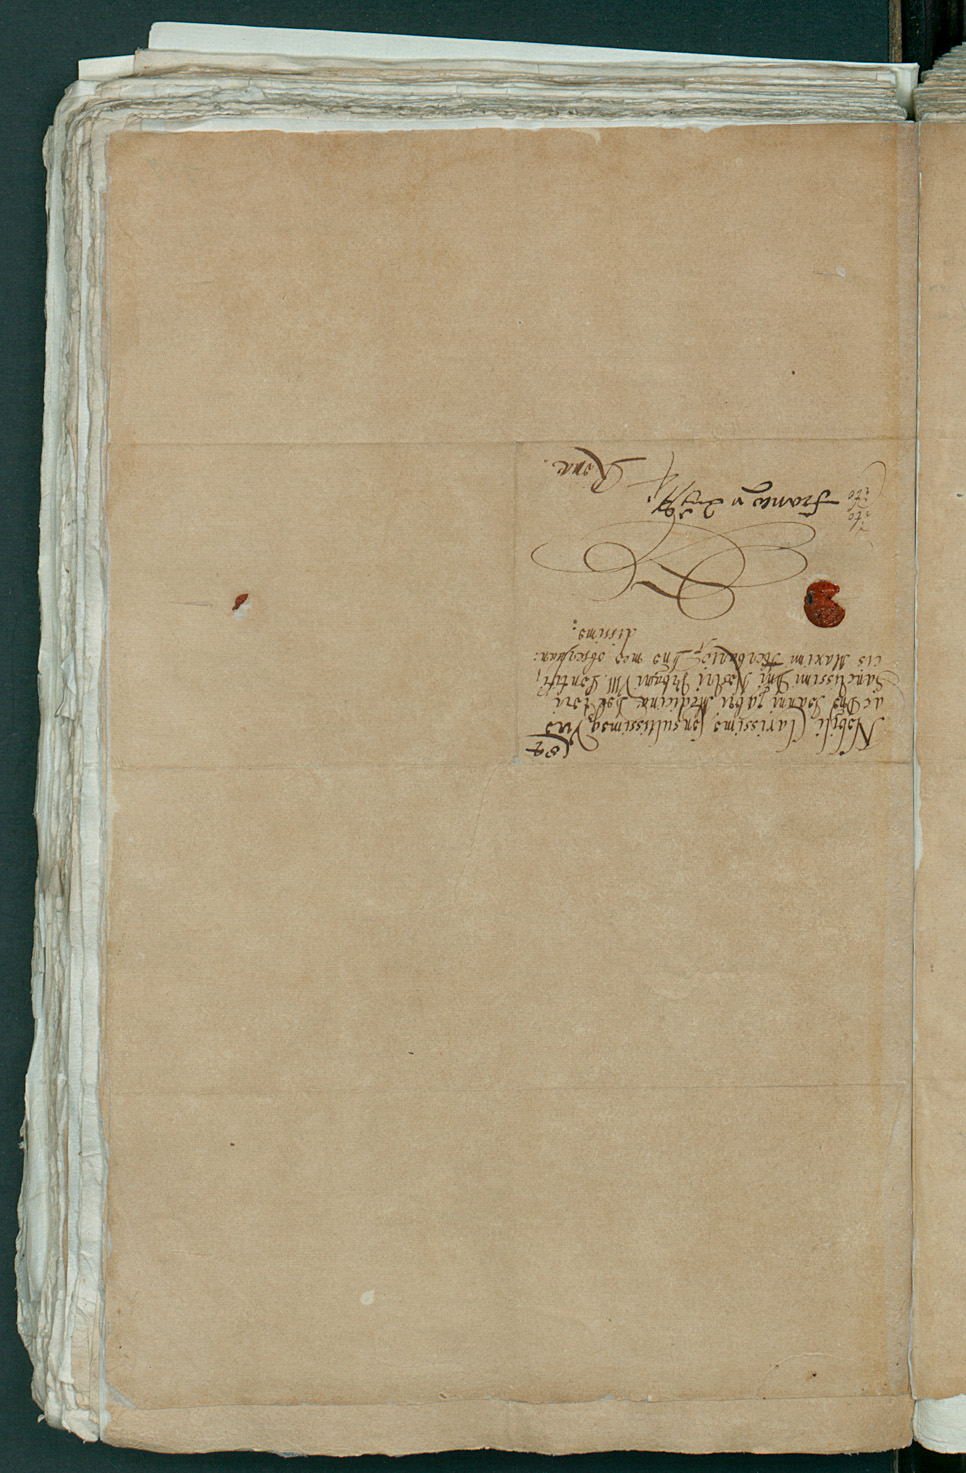 Nobili Clarissimo Consultissimoq Viro
ac Dno Joanni Fabri Medicinæ Doctori
Sanctissimi Dni Nostri Vrbani VIII. Pontifi,
cis Maximi Herbario Dno meo obseruan:
dissimo.
franco
Romæ.